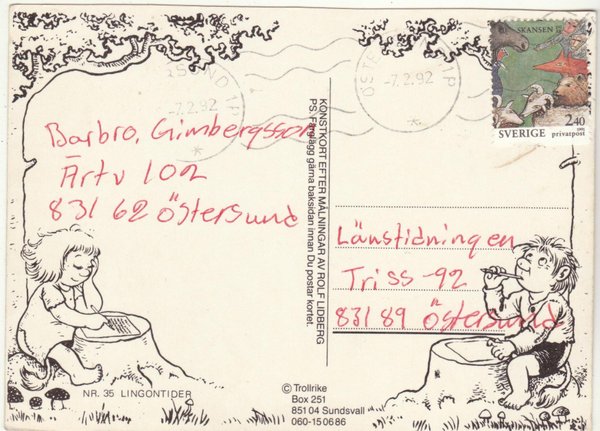 SKANSEN
2.40
SVERIGE privatpost
-7.2.92
-7.2.92
Barbro, Gimbergsson
Ärtv 102
831 62 Östersund
KONSTKORT EFTER MÅLNINGAR AV ROLF LIDBERG
PS. Färglägg gärna baksidan innan Du postar kortet.
Länstidningen
Triss -92
831 89 Östersund
NR. 35 LINGONTIDER
© Trollrike
Box 251
851 04 Sundsvall
060-15 06 86